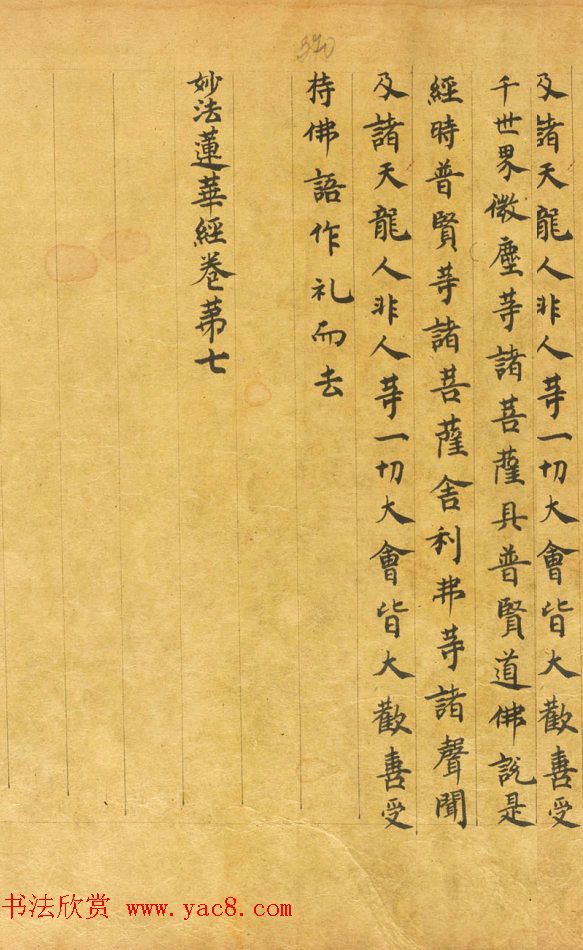 及諸天龍人非人等一切大會皆大歡喜受
千世界微塵等諸菩薩具普賢道佛說是
經時普賢等諸菩薩舍利弗等諸聲聞
及諸天龍人非人等一切大會皆大歡喜受
持佛語作礼而去
妙法蓮華經卷第七
390
书法欣赏 www.yac8.com